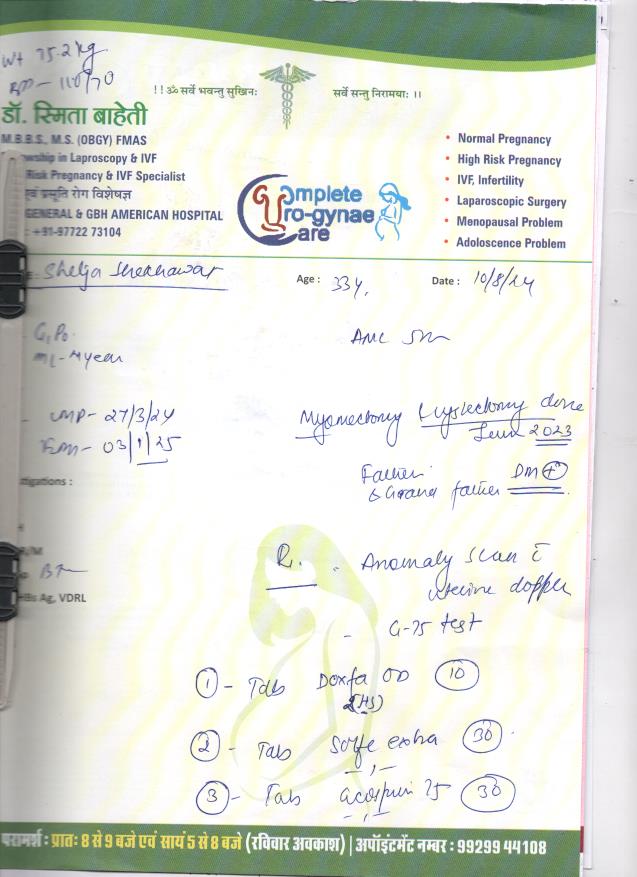 Wt 75.2 kg
BP - 110/70
!! ॐ सर्वे भवन्तु सुखिनः सर्वे सन्तु निरामयाः ।।
डॉ. स्मिता बाहेती
M.B.B.S., M.S. (OBGY) FMAS
wship in Laproscopy & IVF
Risk Pregnancy & IVF Specialist
एवं प्रसूति रोग विशेषज्ञ
GENERAL & GBH AMERICAN HOSPITAL
: +91-97722 73104
• Normal Pregnancy
• High Risk Pregnancy
• IVF, Infertility
• Laparoscopic Surgery
• Menopausal Problem
• Adoloscence Problem
Complete
Uro-gynae
Care
Shelja Shekhawat Age : 33y. Date : 10/8/24
G1P0
ML - 4 year
LMP - 27/3/24
03/1/25
Myomectomy Cystectomy done
2023
Father
& Grand father DM +
tigations :
H
R/M
HBs Ag, VDRL
R. - Anomaly scan c
uterine doppler
- G-75 test
1 - Tab Doxfa OD 10
(HS)
2 - Tab Solfe extra 30
3 - Tab Ecosprin 75 30
परामर्श : प्रातः 8 से 9 बजे एवं सायं 5 से 8 बजे (रविवार अवकाश) | अपॉइंटमेंट नम्बर : 99299 44108